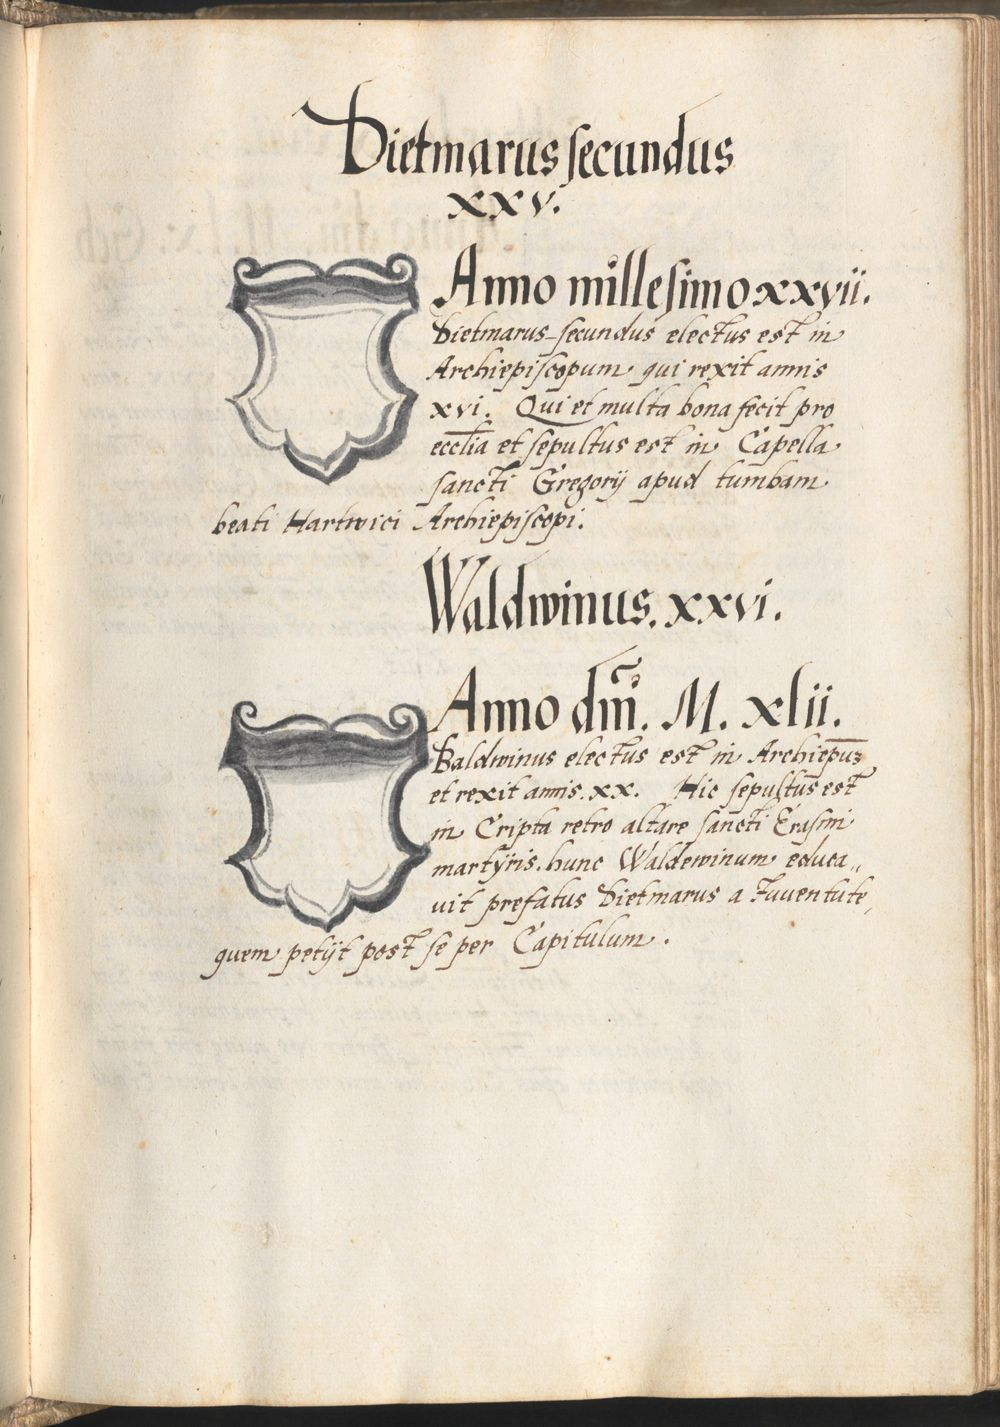 Dietmarus secundus
xxv.
Anno millesimo xxvii.
Dietmarus secundus electus est in
Archiepiscopum qui rexit annis
xvi. Qui et multa bona fecit pro
ecclia et sepultus est in Capella
sancti Gregorij apud tumbam
beati Hartwici Archiepiscopi.
Waldwinus. xxvi.
Anno dni. M. xlii.
Baldwinus electus est in Archiepum
et rexit annis. xx. Hic sepultus est
in Cripta retro altare sancti Erasmi
martÿris. hunc Waldewinum educa„
vit prefatus Dietmarus a Iuventute,
quem petÿt post se per Capitulum.